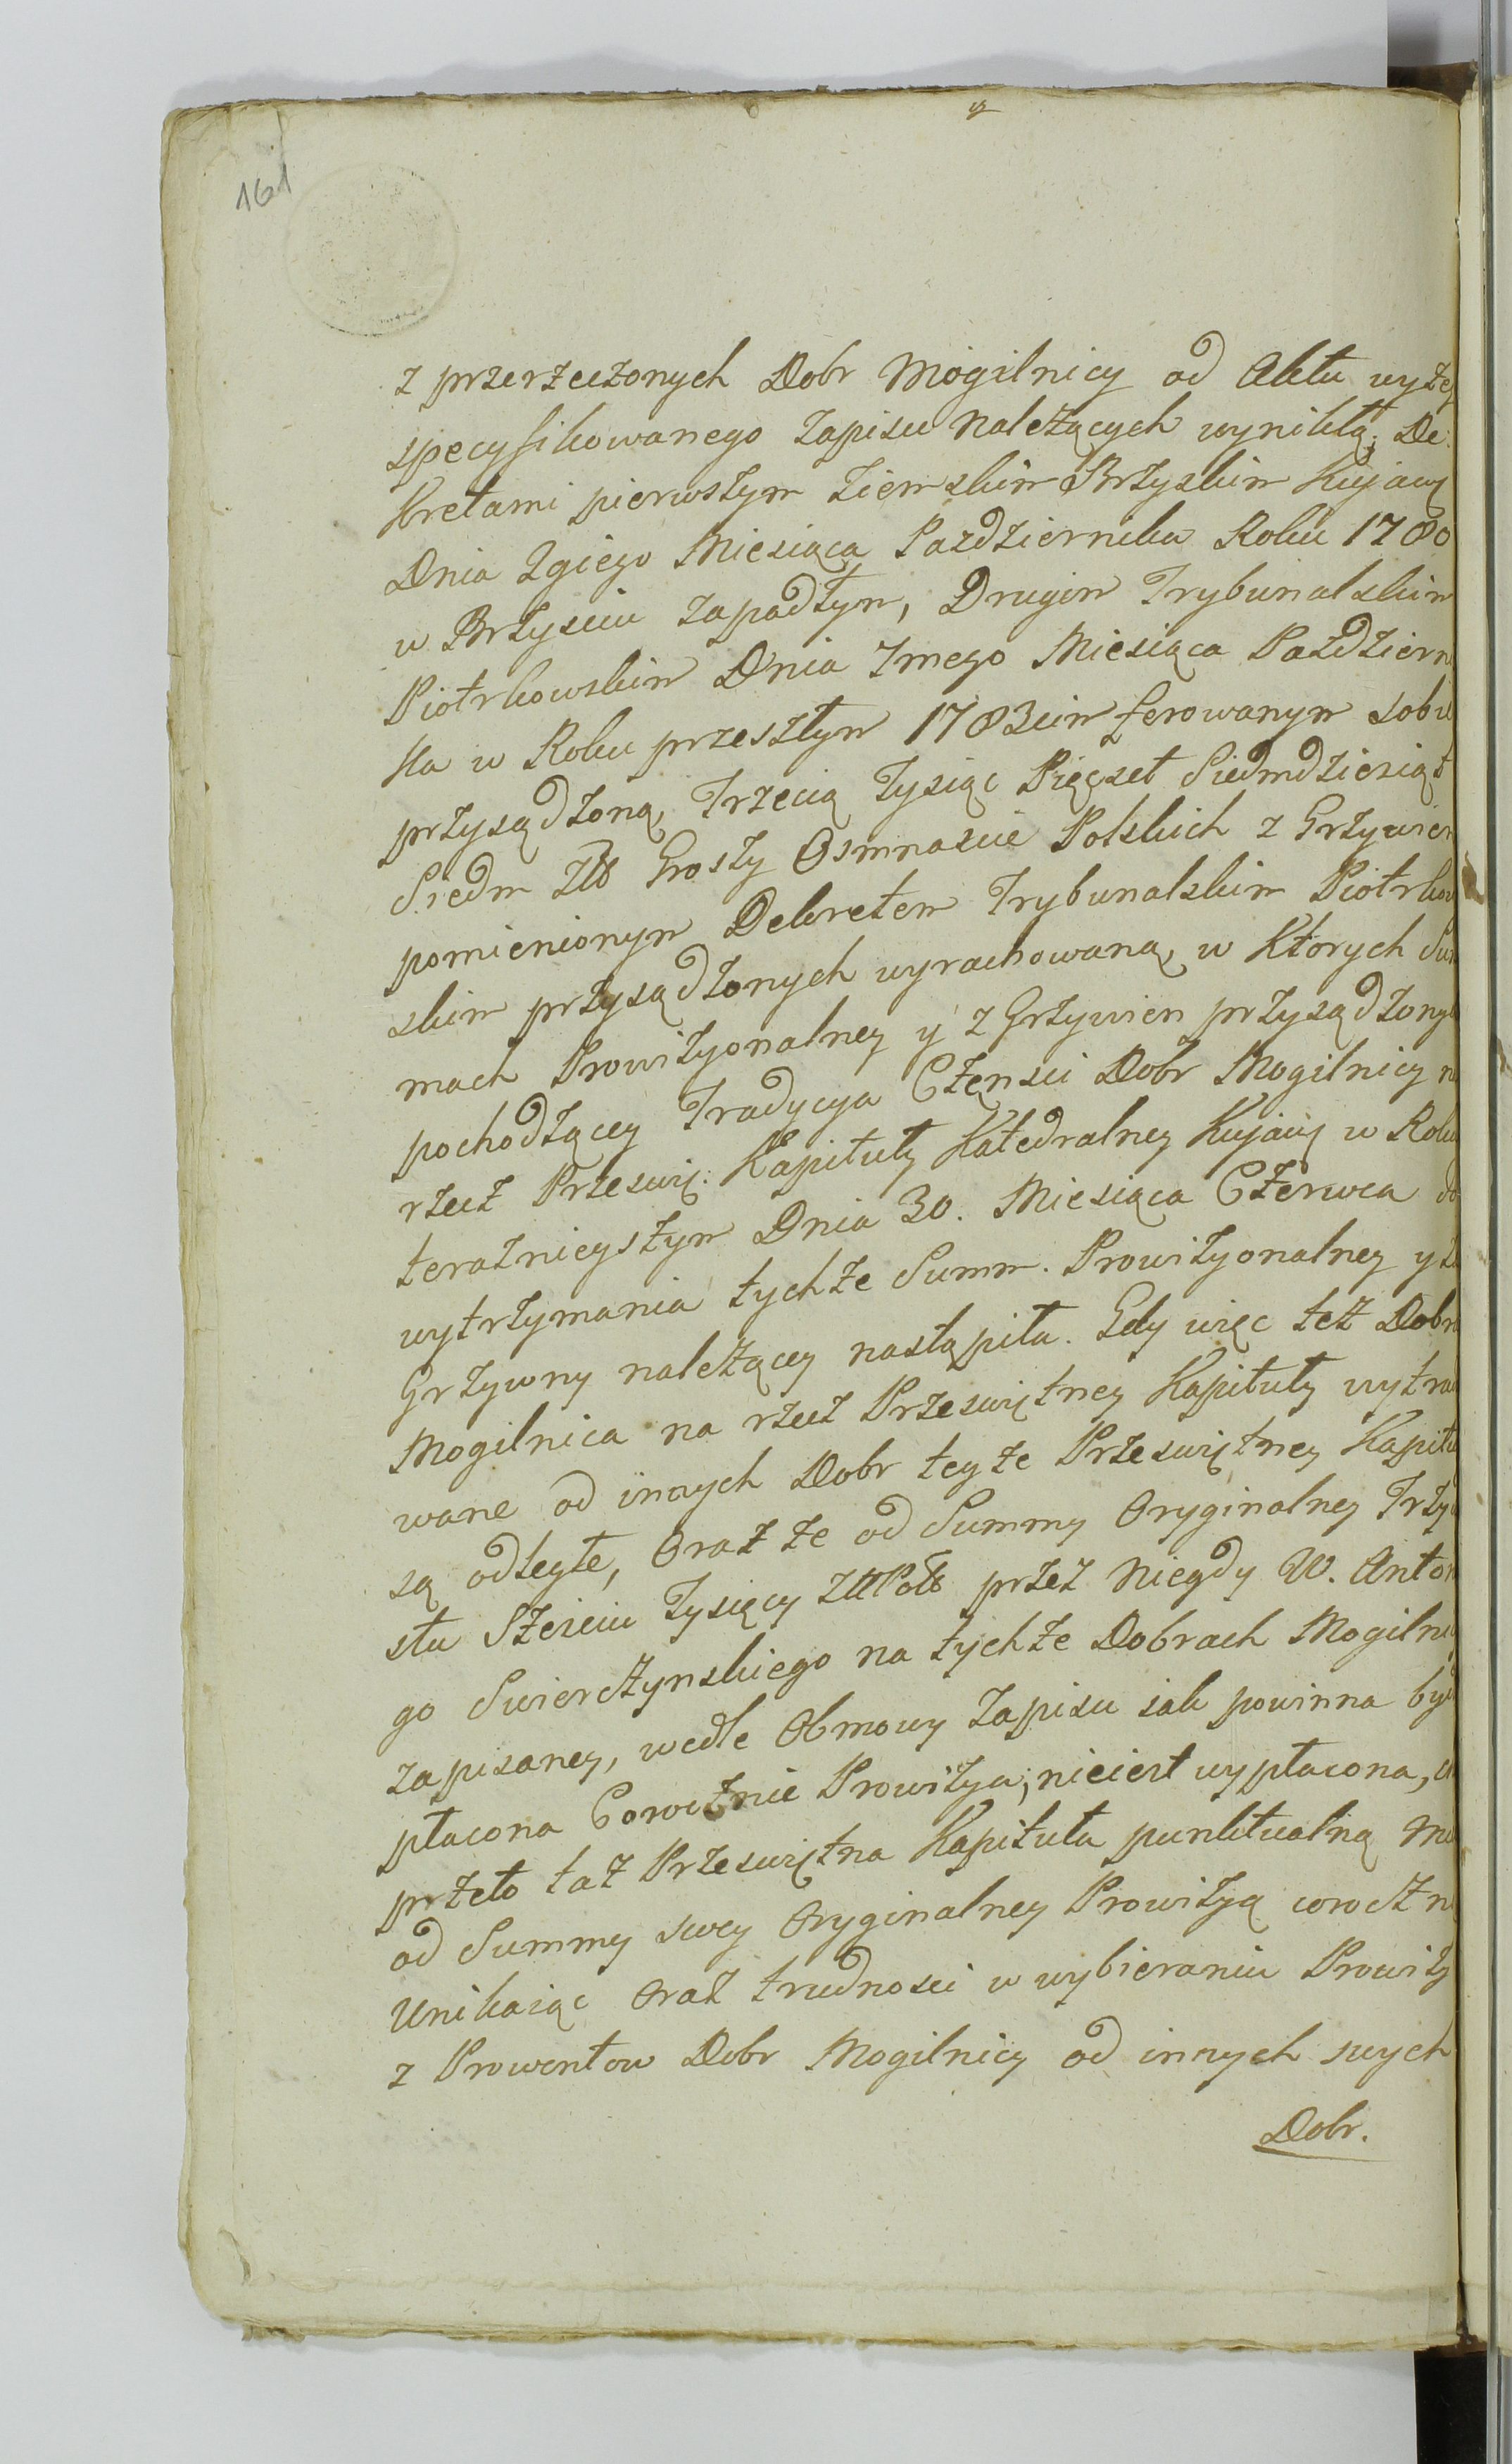 161
z przerzeczonych Dobr Mogilnicy od Aktu wyżey
specyfikowanego Zapisu należących wynikłą; De
kretami pierwszym Ziemskim Brzyskim Kujaw
Dnia 2giego Miesiąca Pazdziernika Roku 1780
w Brzysciu zapadłym, Drugim Trybunalskim
Piotrkowskim Dnia 7mego Miesiąca Pazdziern
ka w Roku przeszłym 1783cim ferowanym sobie
przysądzoną, Trzecią Tysiąc Pięcset Siedmdziesiąt
Siedm Złł Groszy Osmnascie Polskich z Grzywien
pomienionym Dekretem Trybunalskim Piotrkow
skim przysądzonych wyrachowaną, w których Sum
mach Prowizyonalney y z Grzywien przysądzonych
pochodzącey Tradycya Częnsci Dobr Mogilnicy na
rzecz Przeswię: Kapituły Katedralney Kujaw w Roku
teraznieyszym Dnia 30. Miesiąca Czerwca do
wytrzymania tychże Summ. Prowizyonalney y z
Grzywny należącey nastąpiła. Gdy więc też Dobra
Mogilnica na rzecz Przeswiętney Kapituły wytra
wane od innych Dobr teyże Przeswiętney Kapitu
są odległe, Oraz że od Summy Oryginalney Trzy
stu Szesciu Tysięcy Złł Pols przez niegdy W. Anton
go Swierczynskiego na tychże Dobrach Mogilni
zapisaney, wedle Obmowy Zapisu iak powinna być
płacona Corocznie Prowizya; nieiest wypłacona, a
przeto taż Przeswiętna Kapituła punktualną
od Summy swey Oryginalney Prowizyą corocznie
Unikaiąc oraz trudnosci w wybieraniu Prowizy
z Prowentow Dobr Mogilnicy od innych swych
Dobr.